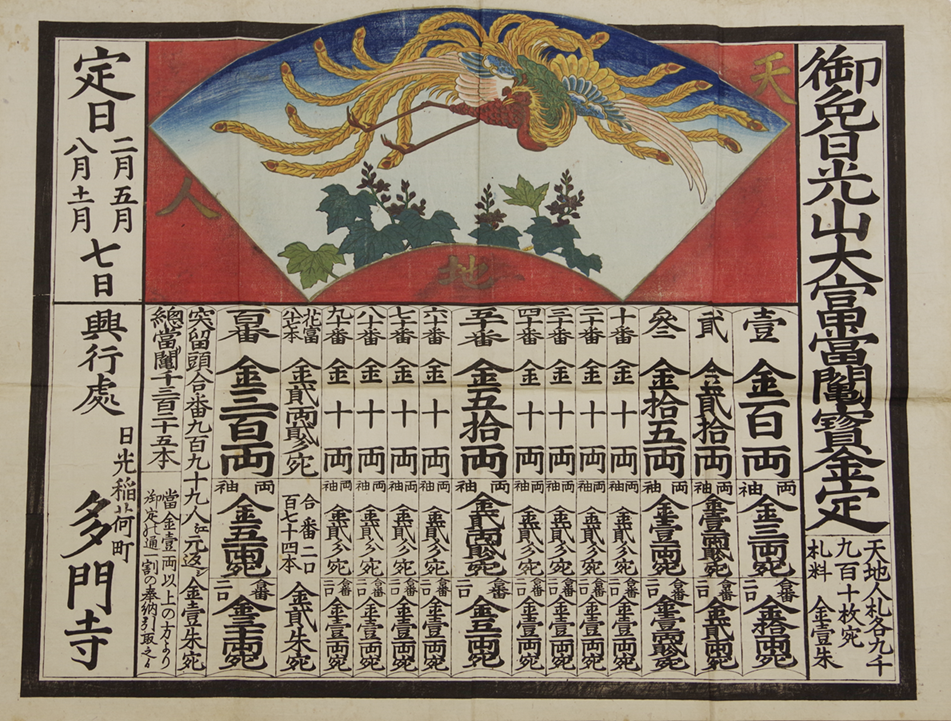 御免日光山大富當鬮寶金定
天地人札各九千
九百十枚宛
札料 金壹朱
天
地
人
壹 金百両 両袖 金三両宛 合番二口 金拾両宛
貳 金貳拾両 両袖 合番二口 金五両宛
叄 金拾五両 両袖 合番二口
十番 金十両 両袖 金貳分宛 合番二口 金壹両宛
二十番 金十両 両袖 金貳分宛 合番二口 金壹両宛
三十番 金十両 両袖 金貳分宛 合番二口 金壹両宛
四十番 金十両 両袖 金貳分宛 合番二口 金壹両宛
五十番 金五拾両 両袖 合番二口 金三両宛
六十番 金十両 両袖 金貳分宛 合番二口 金壹両宛
七十番 金十両 両袖 金貳分宛 合番二口 金壹両宛
八十番 金十両 両袖 金貳分宛 合番二口 金壹両宛
九十番 金十両 両袖 金貳分宛 合番二口 金壹両宛
花當八十七本 金貳両貳分宛 合番二口百七十四本 金貳朱宛
百番 金三百両 両袖 金五両宛 合番二口 金三十両宛
突留頭合番九百九十九人江元返シ金壹朱宛
總當鬮千三百二十五本
當金壹両以上の方より
御定り通一割の奉納引取之
定日
二月五月
八月十一月
七日
興行處
日光稲荷町
多門寺